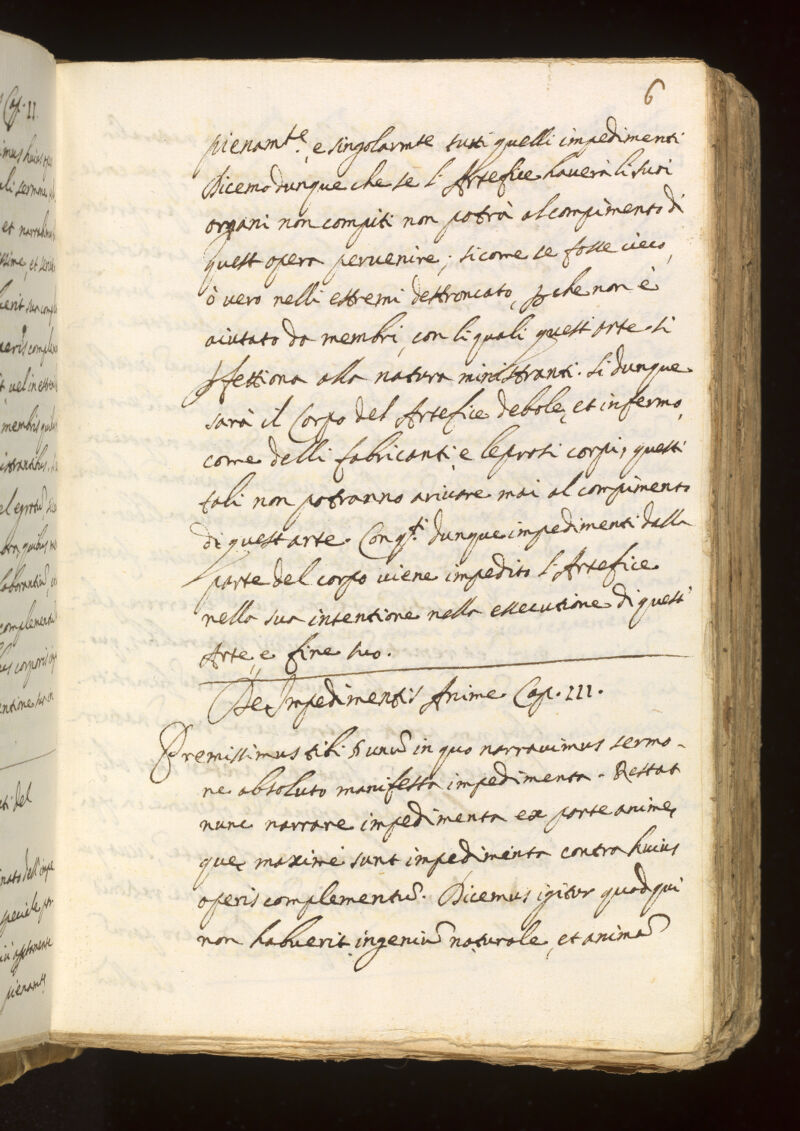 6
pienamte, e singolarmte tutti quelli impedimenti
Dicemo dunque che se l'Artefice haverà li suoi
organi non compiti non potrà al compimento di
quest opera pervenire; sicome se fosse cieco,
ò vero nelli estremi destroncato, pche non è
aiutato da membri, con li quali quest'arte si
pfettiona alla natura ministranti. Si dunque
sarà il Corpo del Artefice debole, et infermo,
come delli fabricanti, e leprosi corpi, questi
tali non potranno arivare mai al compimento
di quest'arte. Con qti dunque impedimenti dalla
parte del corpo viene impedito l'Artefice
nella sua intentione nella essecutione di quest'
Arte, e fine suo.
De Impedimentis Anime Cap. III.
Premissimus tibi unũ in quo narravimus sermo-
ne absoluto manifesta impedimenta. Restat
nunc narrare impedimenta ex parte anime,
que, maxime sunt impedimenta contra huius
operis complementũ. Dicemus igitur quod qui
non habuerit ingeniũ naturale, et animã
Cap. II.